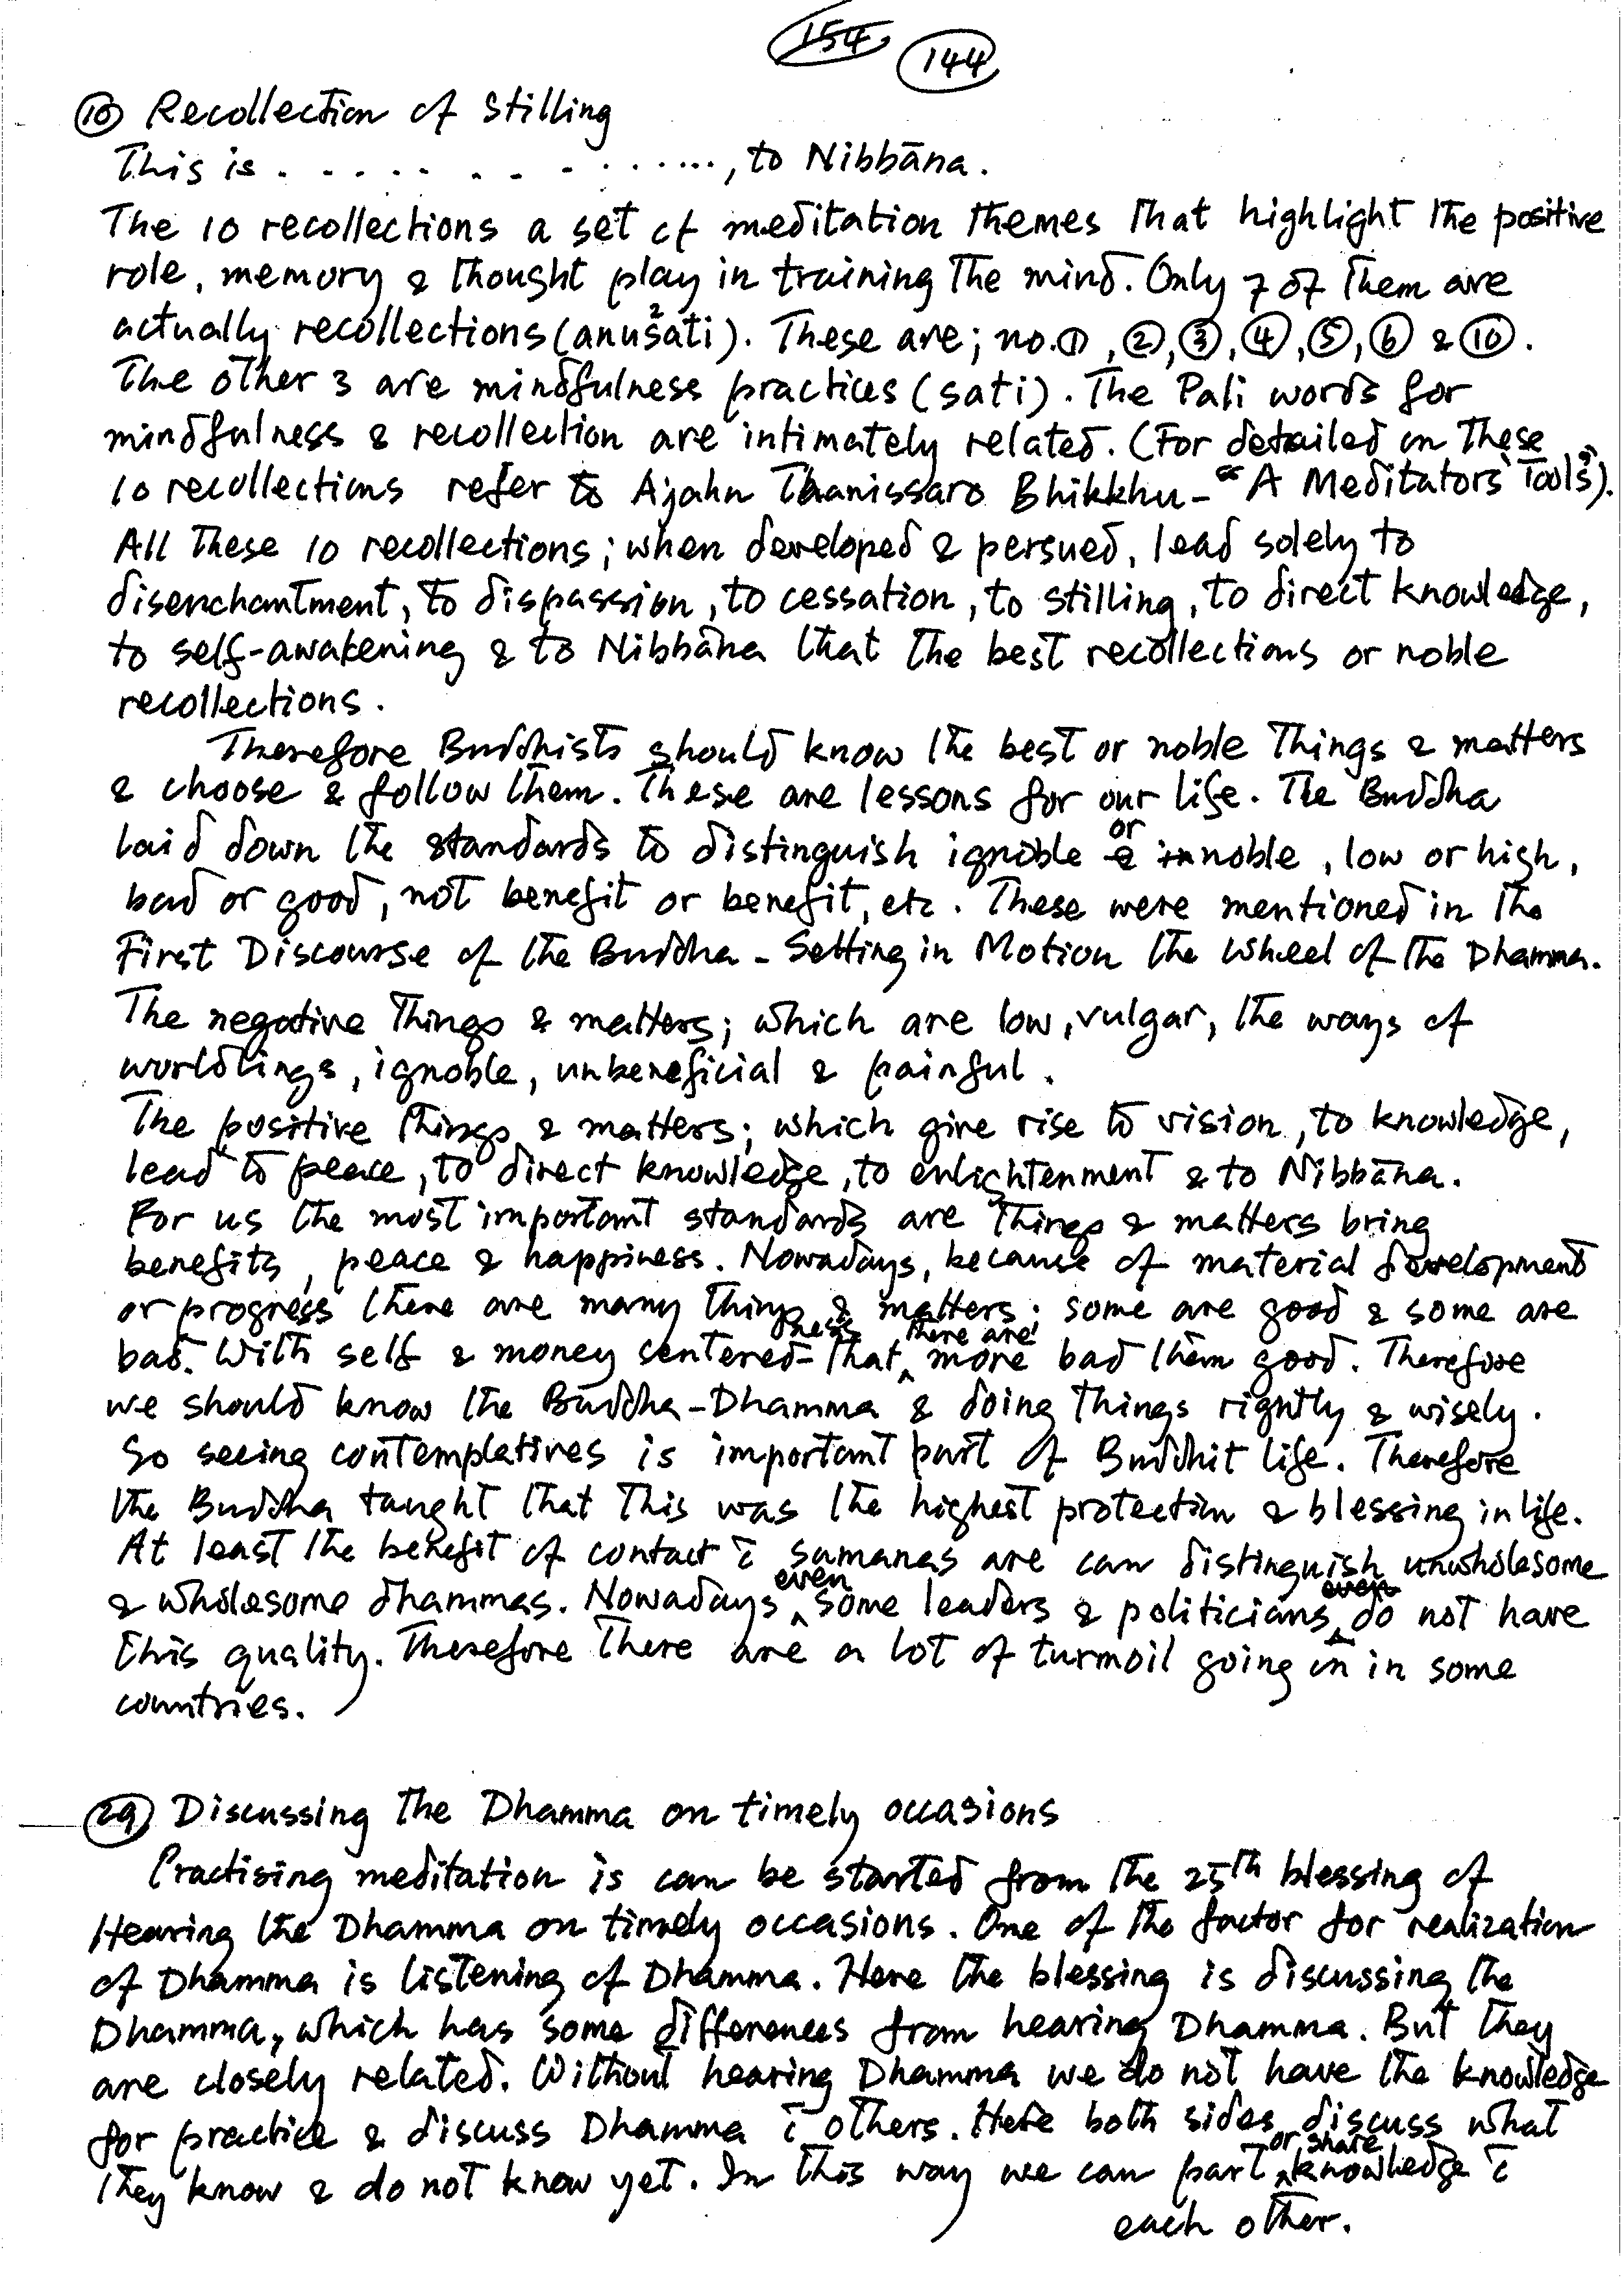 154 144
⑩ Recollection of Stilling
This is . . . . . . . . . . . . ., to Nibbāna.
The 10 recollections a set of meditation themes that highlight the positive
role, memory & thought play in training the mind. Only 7 of them are
actually recollections (anusati). These are; no.①, ②, ③, ④, ⑤, ⑥ & ⑩.
The other 3 are mindfulness practices (sati). The Pali words for
mindfulness & recollection are intimately related. (For detailed on these
10 recollections refer to Ajahn Thanissaro Bhikkhu - "A Meditators' Tools").
All these 10 recollections; when developed & persued, lead solely to
disenchantment, to dispassion, to cessation, to stilling, to direct knowledge,
to self-awakening & to Nibbāna that the best recollections or noble
recollections.
Therefore Buddhists should know the best or noble things & matters
& choose & follow them. These are lessons for our life. The Buddha
laid down the standards to distinguish ignoble or noble, low or high,
bad or good, not benefit or benefit, etc. These were mentioned in the
First Discourse of the Buddha - Setting in Motion the Wheel of the Dhamma.
The negative things & matters; which are low, vulgar, the ways of
worldlings, ignoble, unbeneficial & painful.
The positive things & matters; which give rise to vision, to knowledge,
lead to peace, to direct knowledge, to enlightenment & to Nibbāna.
For us the most important standards are things & matters bring
benefits, peace & happiness. Nowadays, because of material development
or progress there are many things & matters; some are good & some are
bad. With self & money sentered-ness that there are more bad them good. Therefore
we should know the Buddha-Dhamma & doing things rightly & wisely.
So seeing contemplatives is important part of Buddhit life. Therefore
the Buddha taught that this was the highest protection & blessing in life.
At least the benefit of contact c̄ samanas are can distinguish unwholesome
& wholesome dhammas. Nowadays even some leaders & politicians do not have
this quality. Therefore there are a lot of turmoil going on in some
countries.
㉙ Discussing the Dhamma on timely occasions
Practising meditation is can be started from the 25th blessing of
Hearing the Dhamma on timely occasions. One of the factor for realization
of Dhamma is listening of Dhamma. Here the blessing is discussing the
Dhamma, which has some differences from hearing Dhamma. But they
are closely related. Without hearing Dhamma we do not have the knowledge
for practice & discuss Dhamma c̄ others. Here both sides discuss what
they know & do not know yet. In this way we can part or share knowledge c̄
each other.